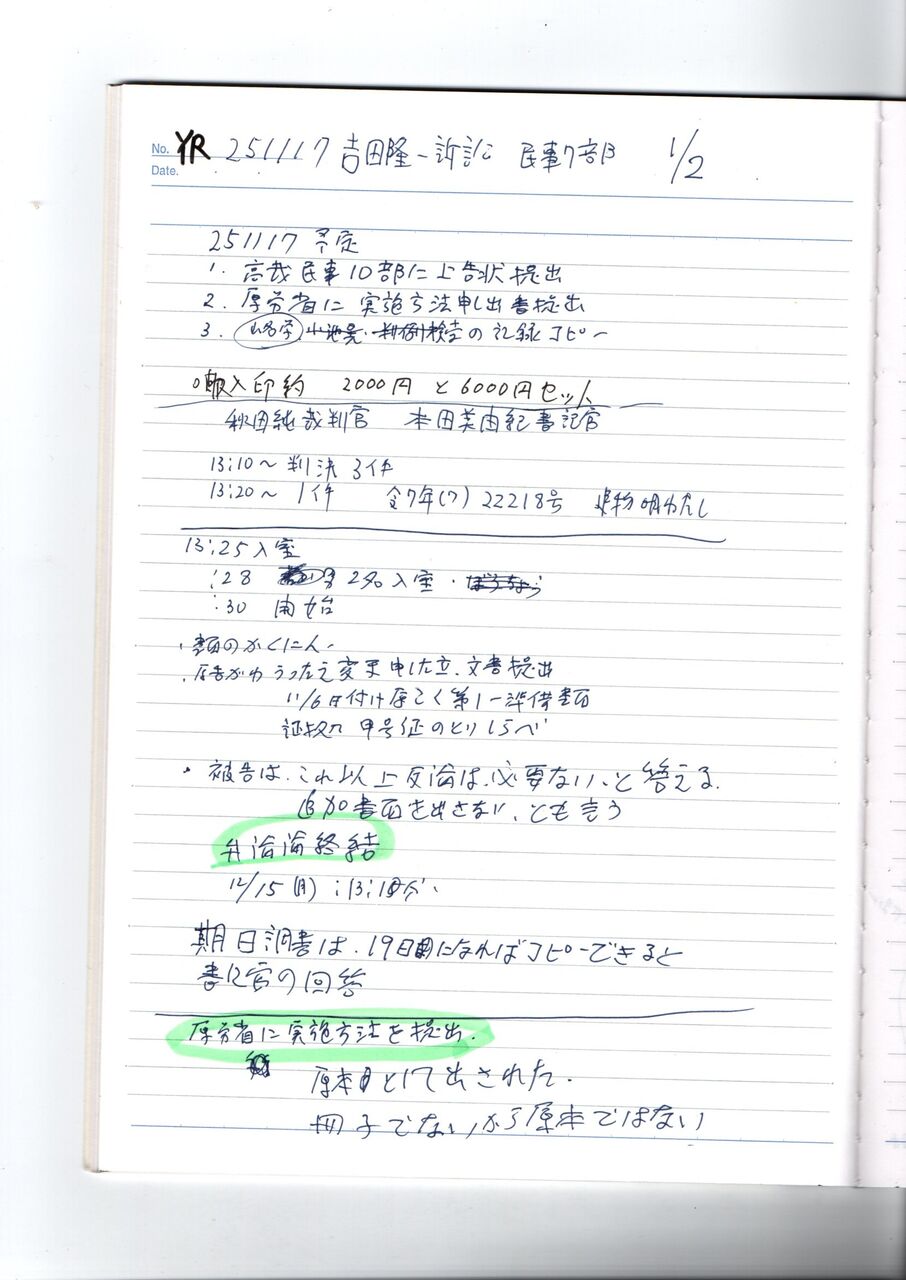 No. YR 251117 吉田隆一訴訟 民事7部 1/2
Date.
251117 予定
1. 高裁民事10部に上告状提出
2. 厚労省に実施方法申出書提出
3. の記録コピー
入印約 2000円と6000円セット
秋田純裁判官 本田美由紀書記官
13:10～判決3件
13:20～ 1件 令7年(ワ)22218号 建物明わたし
13:25入室
:28 2名入室・
:30 開始
・書面のかくにん、
・原告がわうったえ変更申し立、文書提出
11/6日付け原こく第1準備書面
証拠 甲号証のとりしらべ
・被告は、これ以上反論は、必要ない、と答える、
追加書面を出さない、とも言う
弁論終結
12/15(月) :13:10分、
期日調書は、19日になればコピーできると
書記官の回答
厚労省に実施方法を提出、
原本として出された。
冊子でないから原本ではない